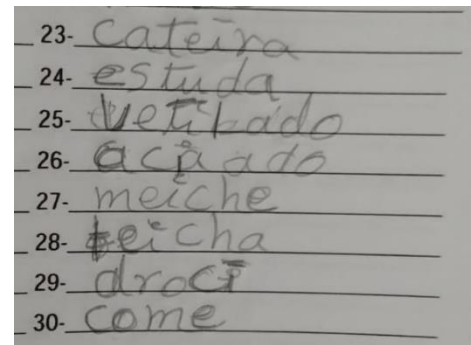 23- cateira
24- estuda
25- vetibado
26- acāado
27- meiche
28- teicha
29- droci
30- come